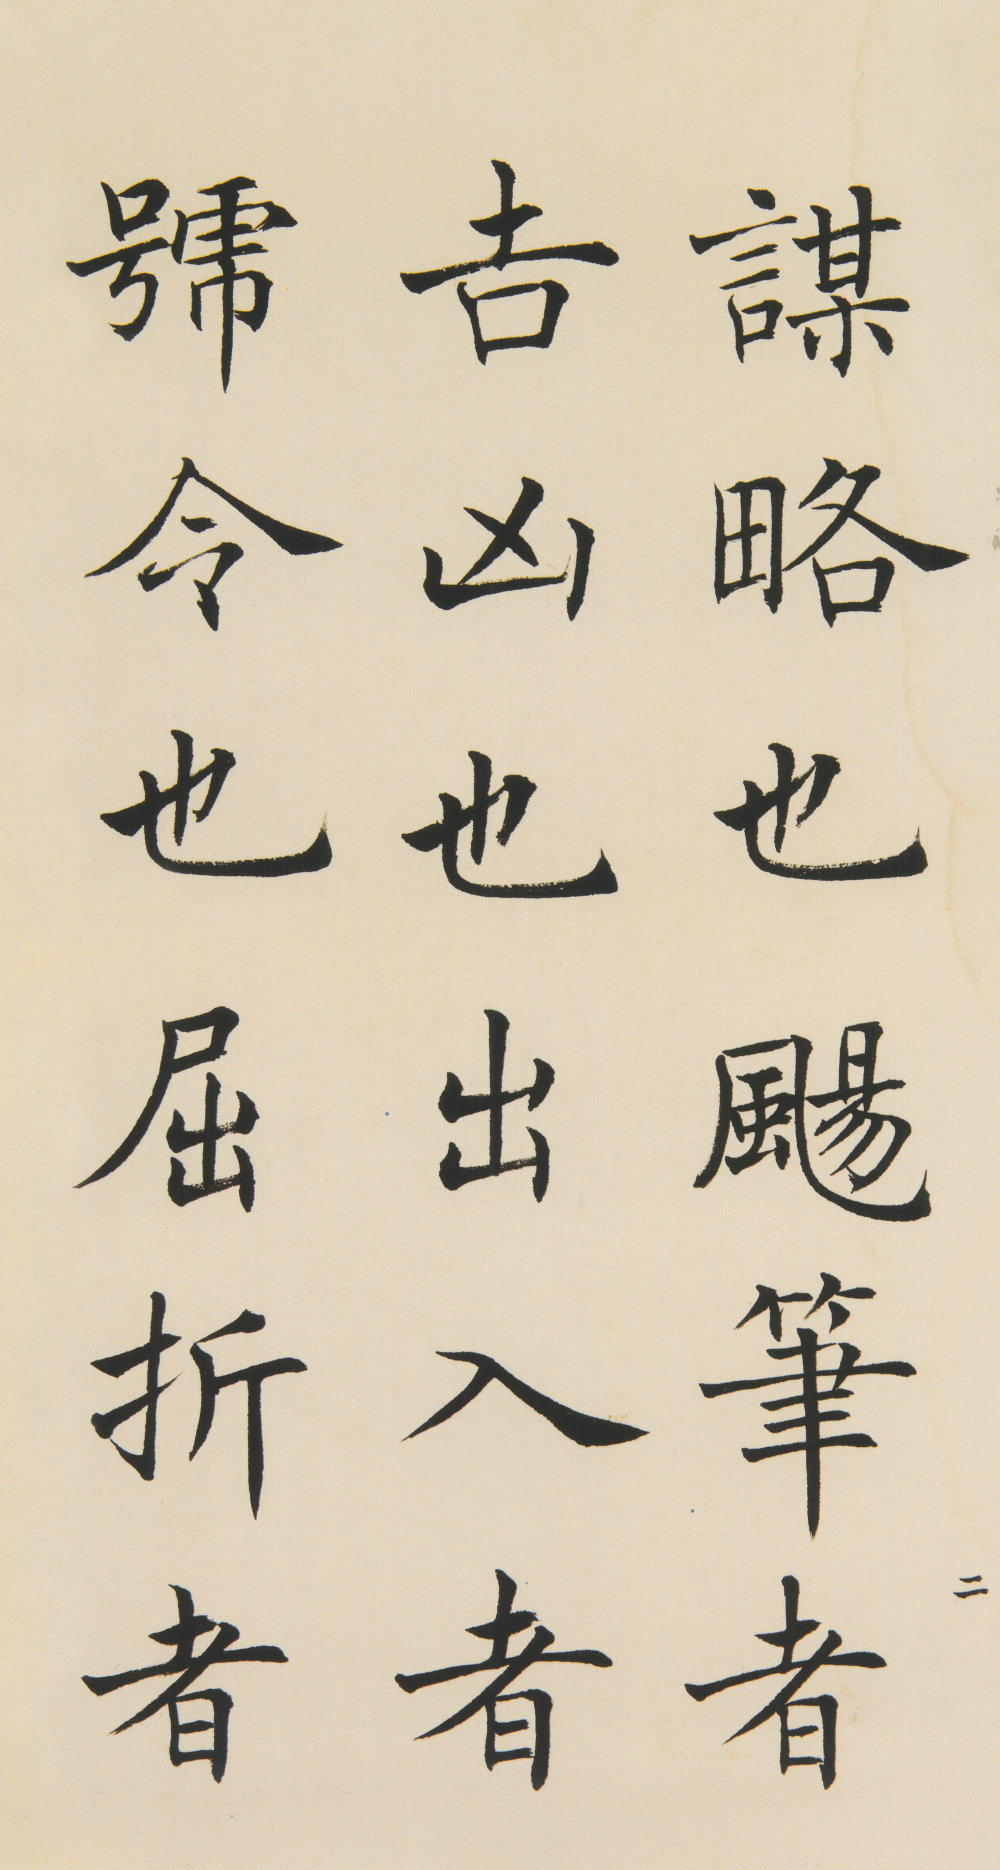 二
謀略也颺筆者
吉凶也出入者
號令也屈折者